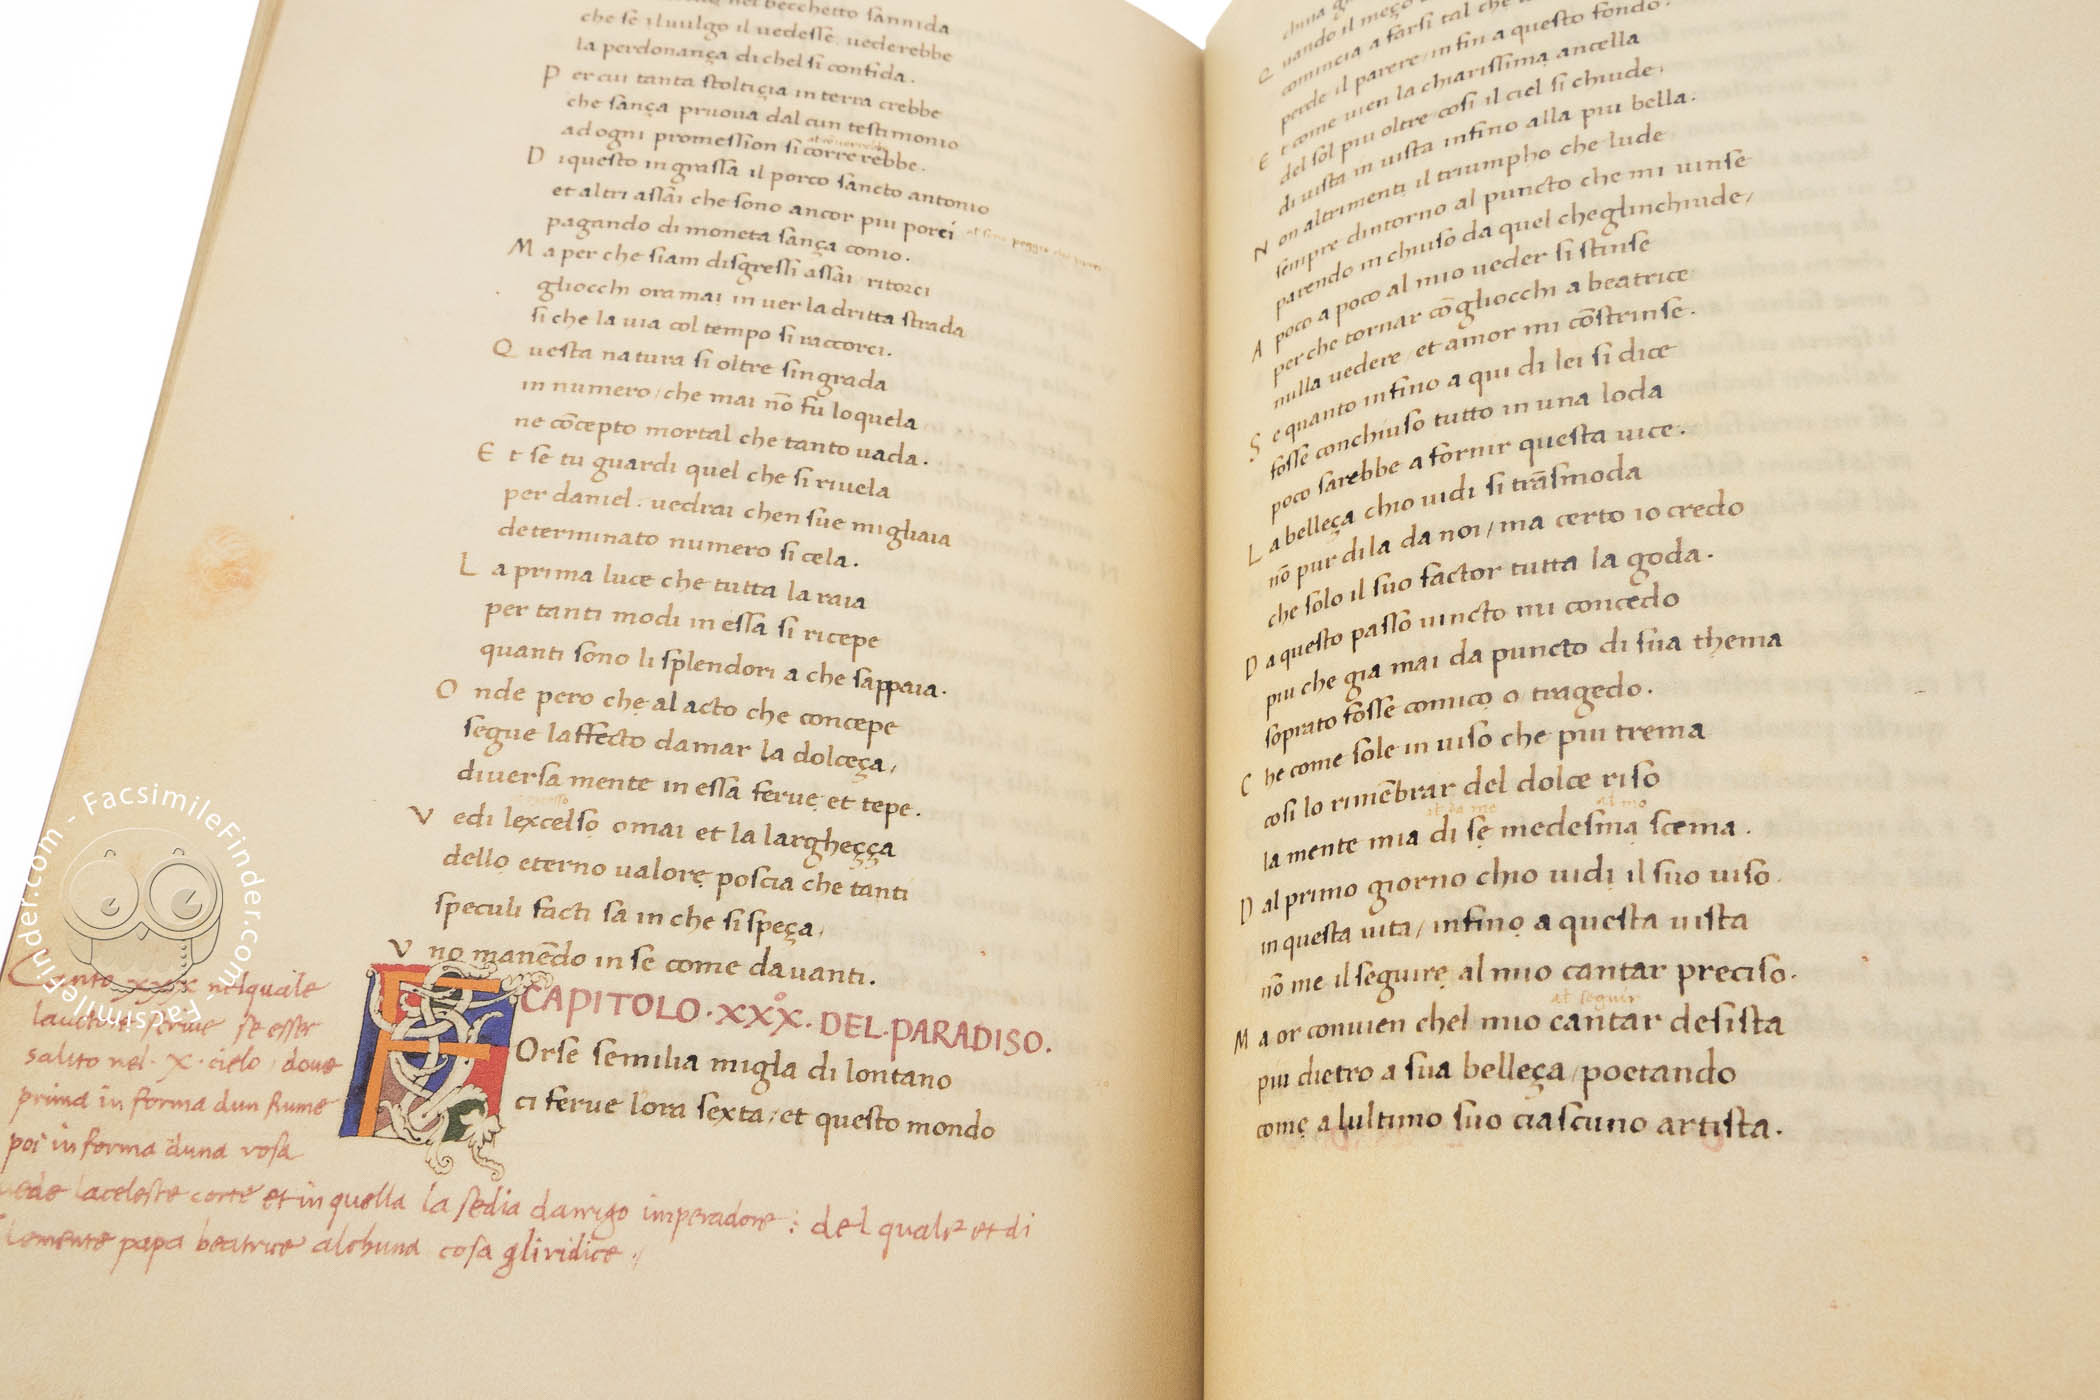 nel becchetto sannida
che se iluulgo il uedesse. uederebbe
la perdonança di chel si confida.
P er cui tanta stolticia in terra crebbe
che sança pruoua dal cun testimonio
ad ogni promession si correrebbe.
D iquesto ingrassa il porco sancto antonio
et altri assai che sono ancor piu porci
pagando di moneta sança conio.
M a per che siam disgressi assai / ritorci
gliocchi oramai in uer la dritta strada
si che la uia col tempo si raccorci.
Q uesta natura si oltre singrada
in numero / che mai nō fu loquela
ne cōcepto mortal che tanto uada.
E t se tu guardi quel che si riuela
per daniel. uedrai chen sue migliaia
determinato numero si cela.
L a prima luce che tutta la raia
per tanti modi in essa si ricepe
quanti sono li splendori a che sappaia.
O nde pero che al acto che concepe
segue laffecto damar la dolceça /
diuersa mente in essa ferue et tepe.
V edi lexcelso omai et la largheçça
dello eterno ualore poscia che tanti
speculi facti sa in che sispeça /
V no manēdo in se come dauanti.
CAPITOLO · XXX° · DEL · PARADISO.
F Orse semilia miglia di lontano
ci ferue lora sexta / et questo mondo
Canto xxx nelquale
lauctore scriue se esser
salito nel · X · cielo / doue
prima in forma dun fiume
poi in forma duna rosa
uede laceleste corte et in quella la sedia darrigo imperadore : del quale et di
Clemente papa beatrice alchuna cosa gliridice /
Q uando il meço
comincia a farsi tal che
perde il parere / infin a questo fondo.
E t come uien la chiarissima ancella
del sol piu oltre cosi il ciel si chiude /
di uista in uista infino alla piu bella.
N on altrimenti il triumpho che lude
sempre dintorno al puncto che mi uinse
parendo inchiuso da quel cheglinchiude /
A poco a poco al mio ueder si stinse
perche tornar cō gliocchi a beatrice
nulla uedere / et amor mi cōstrinse.
S e quanto infino a qui di lei si dice
fosse conchiuso tutto in una loda
poco sarebbe a fornir questa uice.
L a belleça chio uidi si trāsmoda
nō pur dila da noi / ma certo io credo
che solo il suo factor tutta la goda.
D a questo passo uincto mi concedo
piu che gia mai da puncto di sua thema
soprato fosse comico o tragedo.
C he come sole in uiso che piu trema
cosi lo rimēbrar del dolce riso
la mente mia di se medesma scema.
D al primo giorno chio uidi il suo uiso
in questa uita / infino a questa uista
nō me il seguire al mio cantar preciso.
al seguir
M a or conuien chel mio cantar desista
piu dietro a sua belleça / poetando
come alultimo suo ciascuno artista.
FacsimileFinder.com - FacsimileFinder.com -